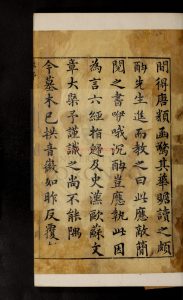 間得唐類函驚其華贍讀之頗
酣先生進而教之曰此應敵簡
閱之書咿哦沉酣豈應執此因
為言六經指歸及史漢歐蘇文
章大槩予謹識之尚不能隅
今墓木已拱音徽如昨反覆